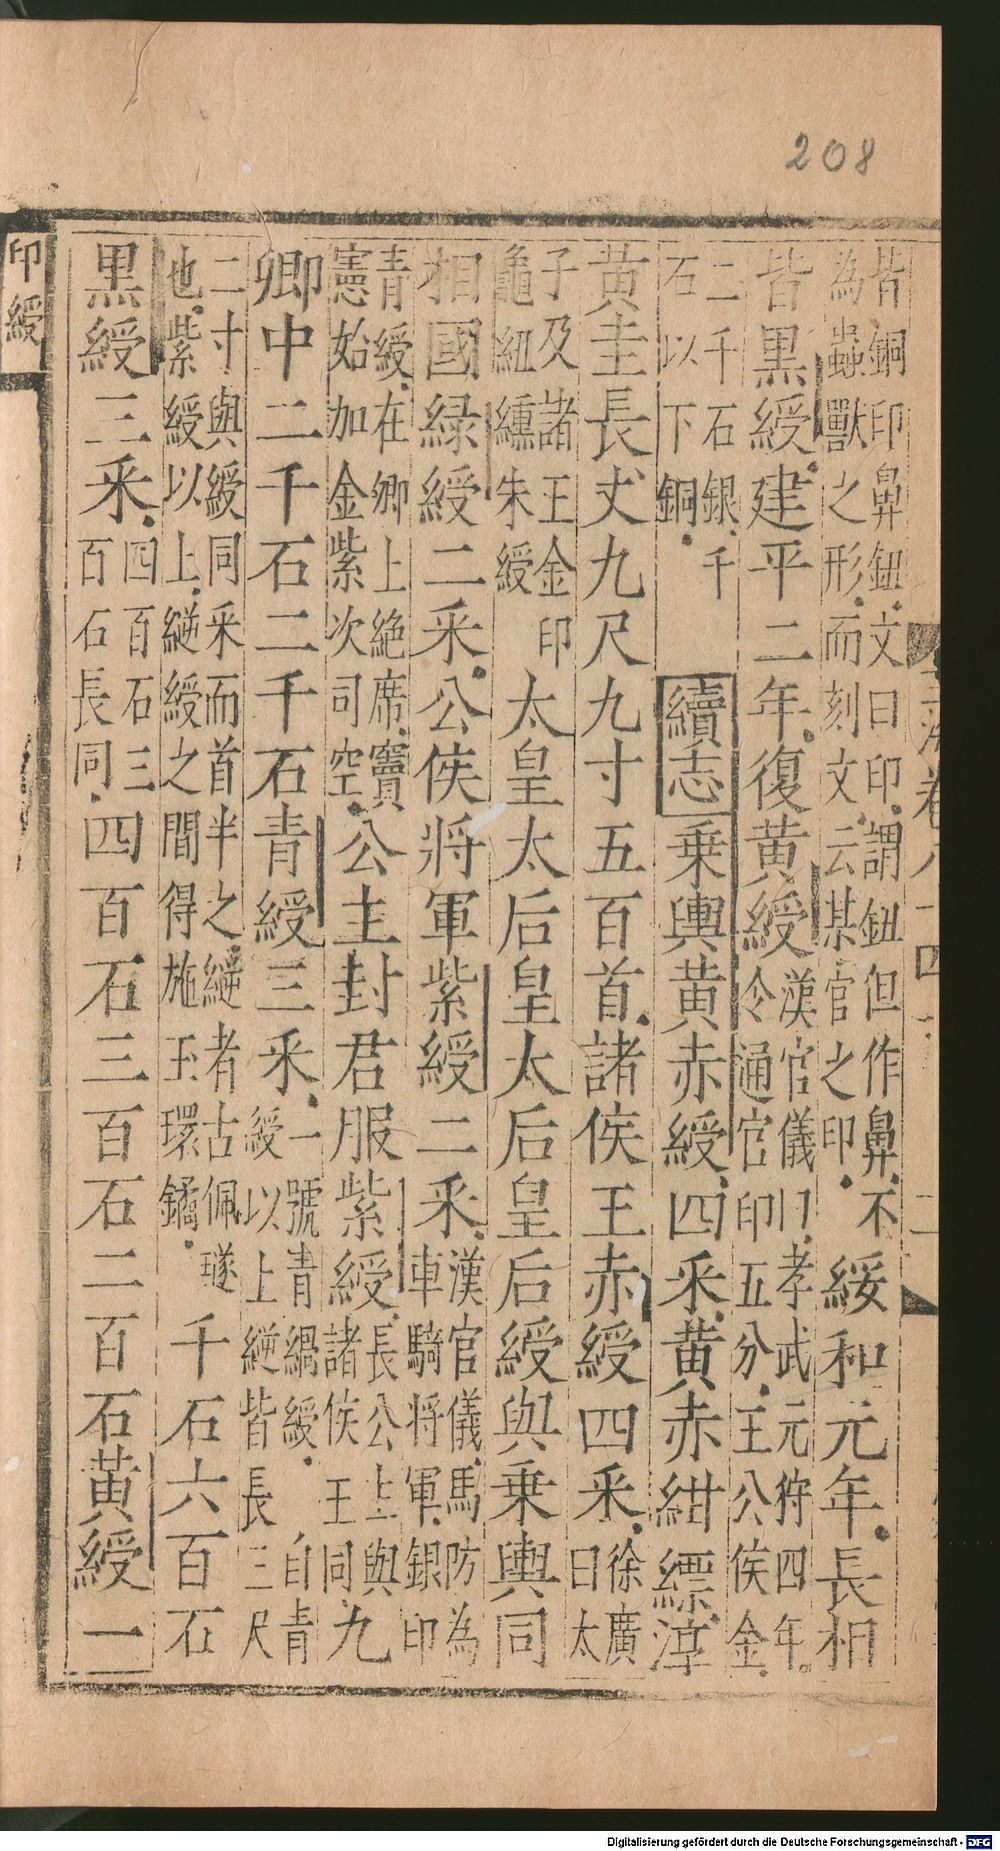 208
玉海卷八十四 二
皆銅印鼻鈕文曰印謂鈕但作鼻不
為蟲獸之形而刻文云某官之印
綏和元年長相
皆黒綬建平二年復黄綬
漢官儀曰孝武元狩四年
令通官印五分王公侯金
二千石銀千
石以下銅
續志乗輿黄赤綬四采黄赤紺縹淳
黄圭長丈九尺九寸五百首諸侯王赤綬四采
徐廣
曰太
子及諸王金印
龜紐纁朱綬
太皇太后皇太后皇后綬與乗輿同
相國緑綬二采公侯將軍紫綬二采
漢官儀馬防為
車騎將軍銀印
青綬在卿上絶席竇
憲始加金紫次司空
公主封君服紫綬
長公主與
諸侯王同
九
卿中二千石二千石青綬三采
一號青緺綬自青
綬以上縌皆長三尺
二寸與綬同采而首半之縌者古佩璲
也紫綬以上縌綬之間得施玉環鐍
千石六百石
黒綬三采
四百石三
百石長同
四百石三百石二百石黄綬一
印綬
Digitalisierung gefördert durch die Deutsche Forschungsgemeinschaft - DFG